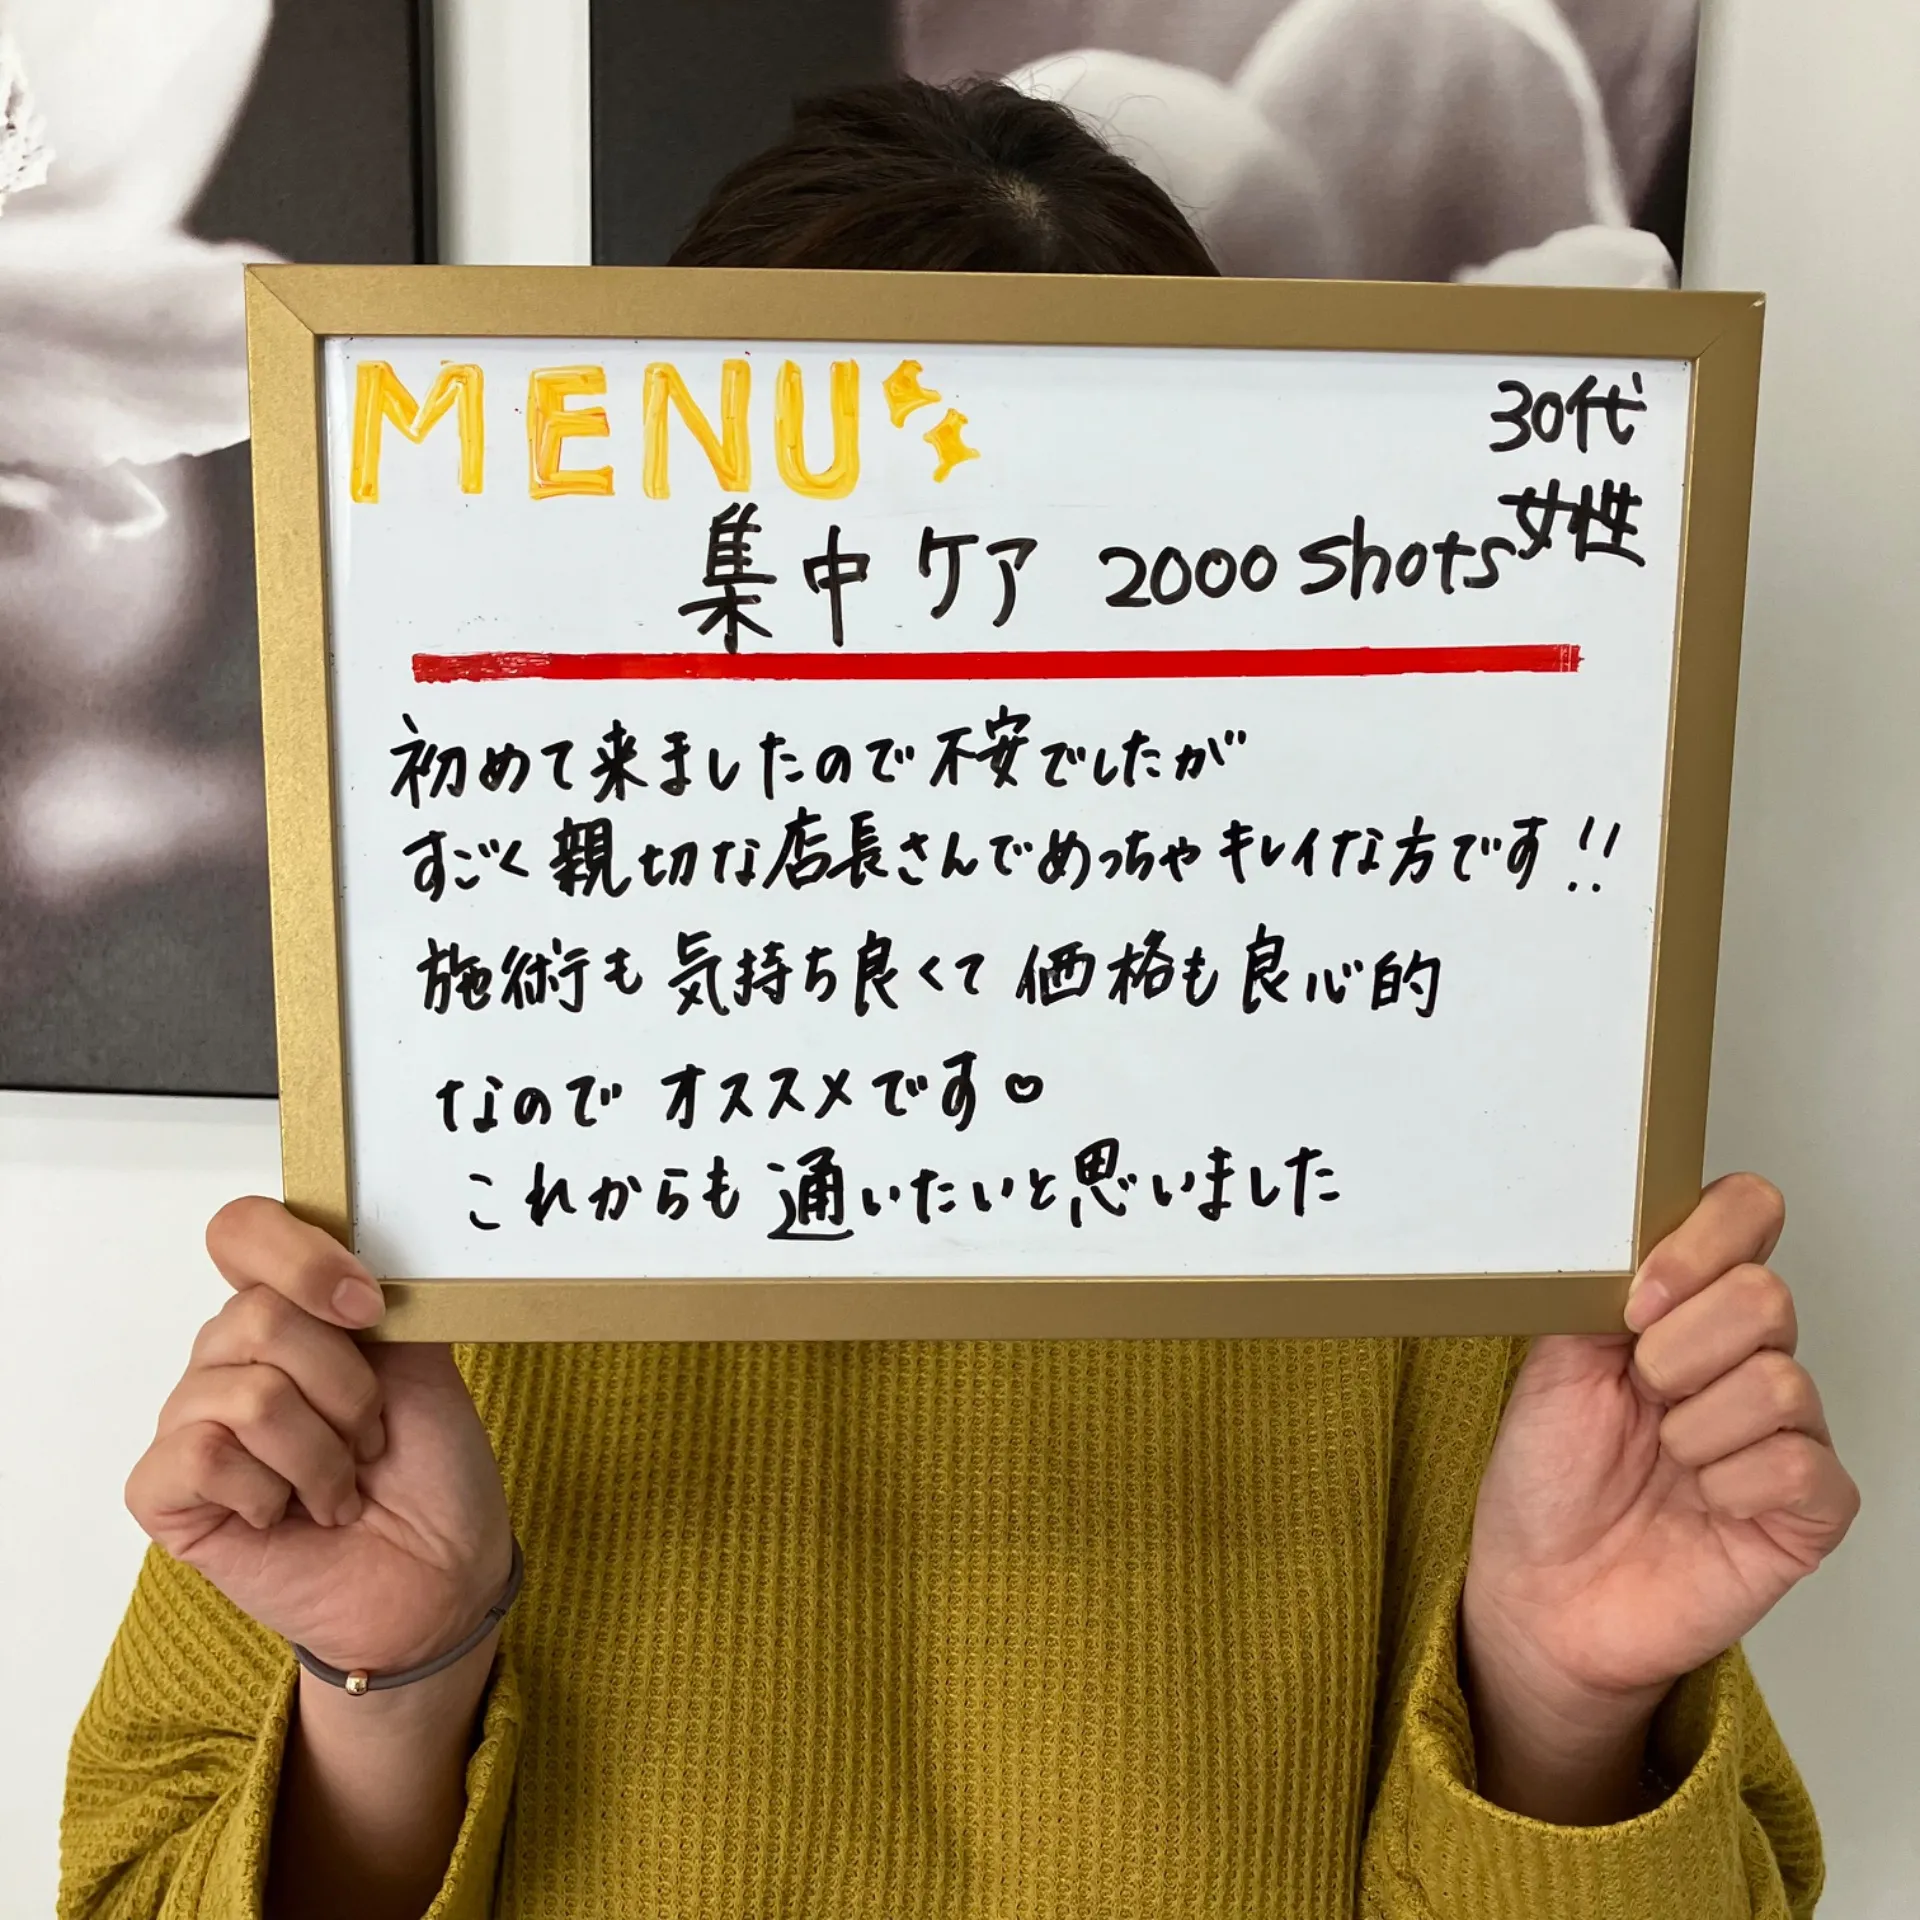 MENU
30代
女性
集中ケア 2000 shots
初めて来ましたので不安でしたが
すごく親切な店長さんでめっちゃキレイな方です!!
施術も気持ち良くて価格も良心的
なのでオススメです♡
これからも通いたいと思いました